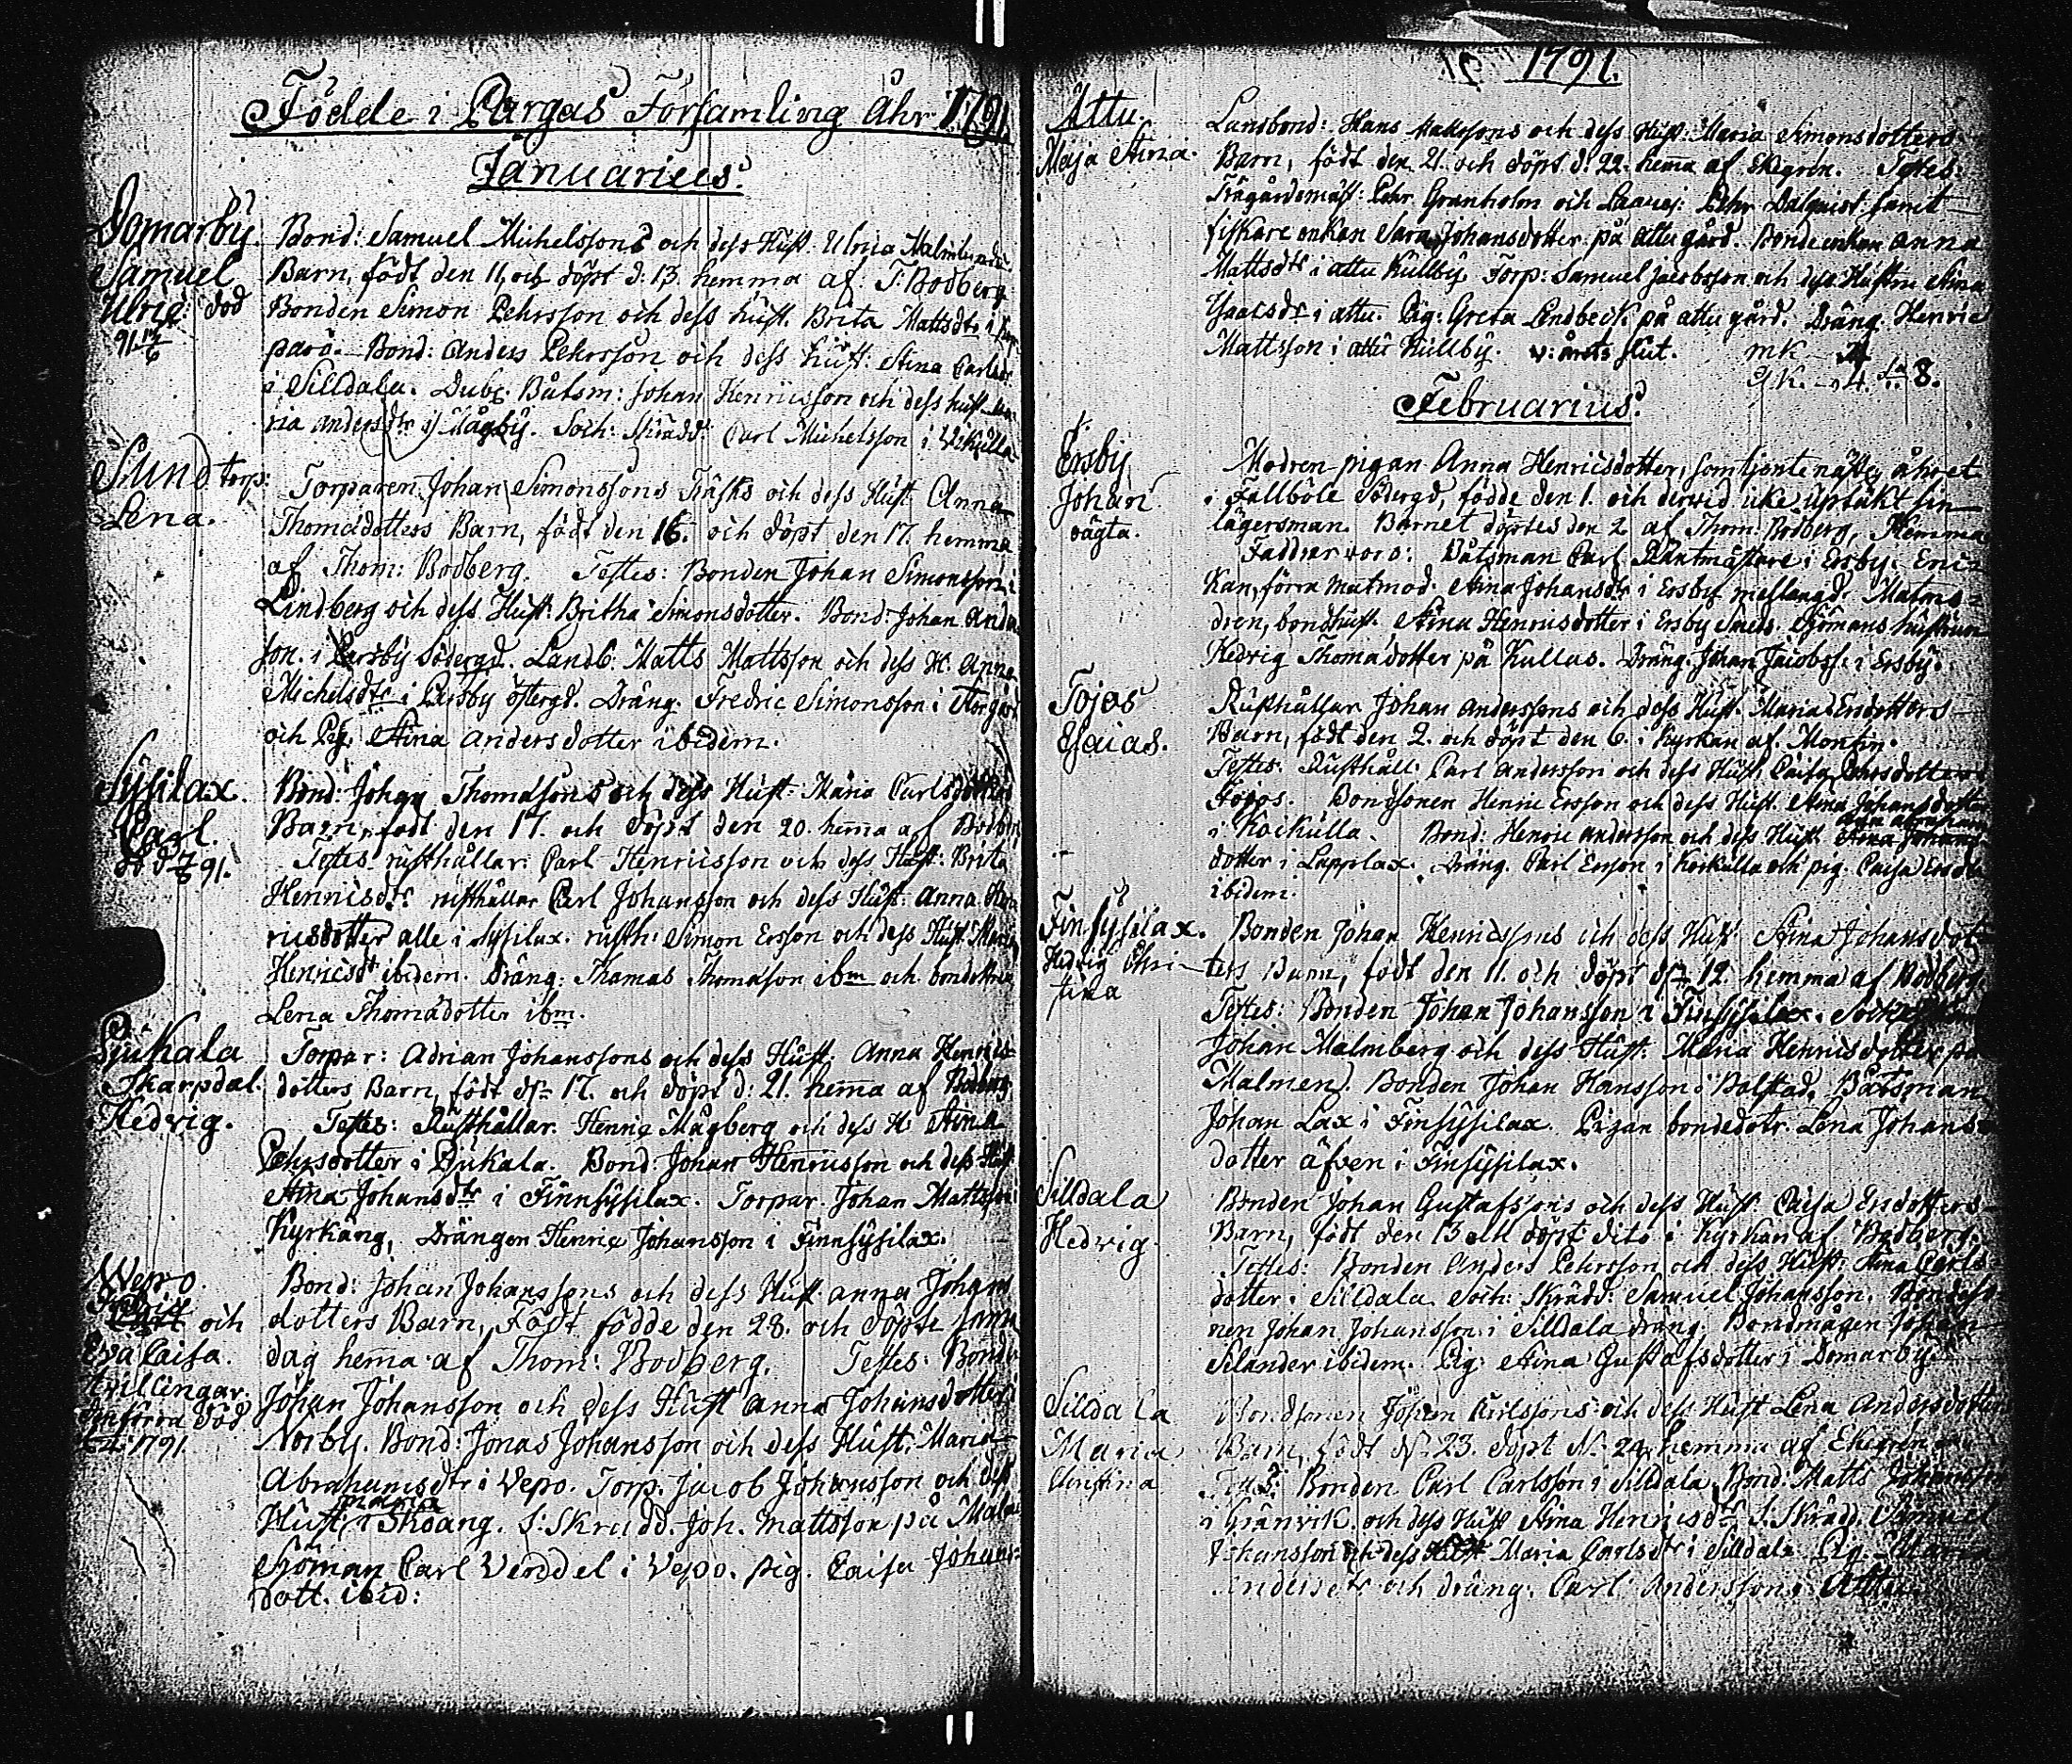 Födde i Pargas Församling Åhr 1791
Januarius.
Domarby. Bond: Samuel Michelssons och dess Hust. Ulrica Malmlunds
Samuel Barn, födt den 11, och döpt d. 13. hemma af T: Bodberg
Ulric: död Bonden Simon Pehrsson och dess hust. Brita Mattsdtr i
91 parö. Bond: Anders Pehrsson och dess hust: Stina Carlsdr
i Silldala. Dubz. Båtsm: Johan Henricsson och dess hust. Ma-
ria Andersdtr i Mågby. Soch: Skrädd: Carl Michelsson i
Sundtorp: Torparen Johan Simonssons Träsks och dess Hust. Anna
Lena. Thomædotters Barn, födt den 16. och döpt den 17. hemma
af Thom: Bodberg. Testes: Bonden Johan Simonsson i
Lindberg och dess Hust: Britha Simonsdotter. Bond: Johan Anders
son. i Ersby Södergd. Landb. Matts Mattsson och dess H. Anna
Michelsdtr i Ersby östergd. Dräng. Fredric Simonsson i
och Pig. Stina Andersdotter ibidem.
Sysilax. Bond: Johan Thomassons och dess Hust: Maria Carlsdotters
Carl. Barn, födt den 17. och döpt den 20. hema af Bodberg
91. Testes rusthållar: Carl Henricsson och dess Hust: Brita
Henricsdtr rusthållar Carl Johansson och dess Hust: Anna Hen
ricsdotter alle i Sysilax. rusth: Simon Ersson och dess Hust Maria
Henricsdr ibidem. Dräng: Thomas Thomasson ibm och bondottren
Lena Thomædotter ibm.
Pjukala Torpar: Adrian Johanssons och dess Hust. Anna Henrics
Skarpdal. dotters Barn, födt dn 17. och döpt d: 21. hema af Bodberg
Hedvig. Testes: Rusthållar. Henric Mågberg och dess H: Stina
Pehrsdotter i Pjukala. Bond: Johan Henricsson och dess Hust
Stina Johansdtr i Finnsysilax. Torpar. Johan Mattsson
Kyrkäng, Drängen Henric Johansson i Finnsysilax.
Wepo. Bond: Johan Johanssons och dess Hust anna Johans
och dotters Barn, Födt födde den 28. och döpte samma
Eva Caisa. dag hema af Thom: Bodberg. Testes: Bonde
tvillingar. Johan Johansson och dess Hust anna Johansdotter i
den förra död Norby. Bond: Jonas Johansson och dess Hust. Maria
1791. Abrahamsdtr i Vepo. Torp. Jacob Johansson och dess
Hust: maria i Skoäng. S: Skrädd. Joh. Mattsson på Malm
Sjöman Carl Verddel i Vepo. pig. Caisa Johans-
dott. ibid:
1791.
Attu. Landbond: Hans Mattssons och dess Hust: Maria Simonsdotters
Maja Stina. Barn, födt den 21. och döpt d: 22. hema af Ekegren. Testes:
Trägårdsmäst: Pehr Granholm och Pehr Dalquist samt
fiskare enkan Sara Johansdotter på Attu gård. Bonde enkan Anna
Mattsdtr i attu Kullby. Torp: Samuel Jacobsson och dess Hustru Stina
Isacsdr i attu. Pig: Greta Lindbeck på attu gård. Dräng Henric
Mattsson i attu Kullby. v: årets slut. mk — 4
qK. — 4. Sa 8.
Februarius.
Ersby Modren pigan Anna Henricsdotter, som tjente nästl. åhret
Johan i Fallböle Södergd, födde den 1. och dervid icke uptäkt sin
oägta. lägersman. Barnet döptes den 2 af Thom: Bodberg, Hemma
Faddrar voro: Båtsman Carl Räntmästare i Ersby. En-
kan, förra matmod. Stina Johansdtr i Ersby mellangd. Matmo-
dren, bondhust. Stina Henricsdotter i Ersby Smeds. Sjömans hustrun
Hedvig Thomædotter på Kullas. Dräng. Johan Jacobss. i Ersby.
Tojas Rusthållar Johan Anderssons och dess Hust. Maria Ersdotters
Esaias. Barn, födt den 2. och döpt den 6. i Kyrkan af Montin.
Testes. Rusthåll: Carl Andersson och dess Hust. Caisa Pehrsdotter i
Bondsonen Henric Ersson och dess Hust. Stina Johansdotter
i Korkulla. Bond: Henric Andersson och dess Hust.
dotter i Lapplax. Dräng. Carl Ersson i Korkulla och pig. Caisa Ersdtr
ibidem.
Finsysilax. Bonden Johan Henricssons och dess Hust Stina Johansdot-
Hedvig Chri- ters Barn, födt den 11. och döpt dn 12. hemma af Bodberg.
stina Testes: Bonden Johan Johansson i Finsysilax.
Johan Malmberg och dess Hust. Maria Henricsdotter på
Malmen. Bonden Johan Hansson i Bolstad. Båtsman
Johan Lax i Finsysilax. Pigan bondedotr. Lena Johans-
dotter äfven i Finsysilax.
Silldala Bonden Johan Gustafssons och dess Hust: Caisa Ersdotters
Hedvig. Barn, födt den 13 och döpt dito i Kyrkan af Bodberg.
Testes: Bonden Anders Pehrsson och dess Hust: Stina Carls-
dotter i Silldala Soch: Skrädd: Samuel Johansson. Bondeso-
nen Johan Johansson i Silldala dräng: Bondmågen Johan
Selander ibidem. Pig: Stina Gustafsdotter i Domarby.
Silldala Bondsonen Johan Carlssons och dess Hust Lena Andersdotters
Maria Barn, födt dn 23. döpt dn 24. hemma af Ekegren
Christina Testes: Bonden Carl Carlsson i Silldala. Bond: Matts Johansson
i Granvik. och dess Hust Stina Henricsdtr S: Skrädd. Samuel
Johansson och dess Hust Maria Carlsdtr i Silldala Pig. Maria
Andersdtr och dräng. Carl Andersson i Attu